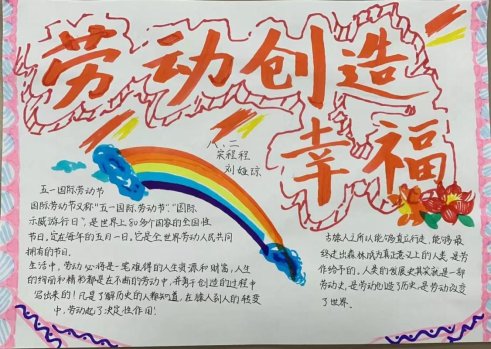 劳动创造
幸福
八、二
宋程程
刘娅琼
五一国际劳动节
国际劳动节又称"五一国际劳动节","国际
示威游行日",是世界上80多个国家的全国性
节日。定在每年的五月一日。它是全世界劳动人民共同
拥有的节日。
生活中,劳动必将是一笔难得的人生资源和财富,人生
的绚丽和精彩都是在不断的劳动中,并勇于创造的过程中
写出来的!凡是了解历史的人都知道,在猿人到人的转变
中,劳动起了决定性作用!
古猿人之所以能够直立行走,能够最
终走出森林成为真正意义上的人类,是劳
作给予的。人类的发展史其实就是一部
劳动史,是劳动创造了历史,是劳动改变
了世界.